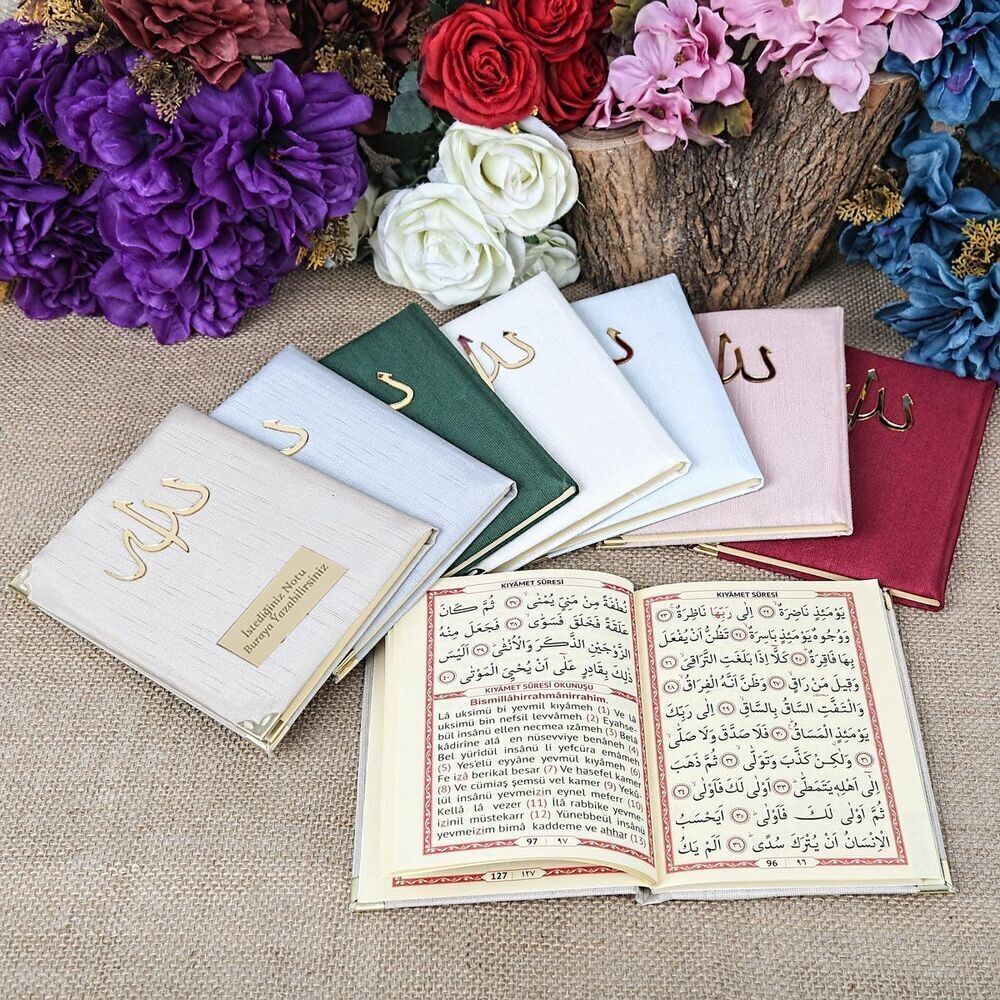 İstediğiniz Notu
Buraya Yazabilirsiniz
KIYÂMET SÛRESİ
نُطْفَةً مِنْ مَنِيٍّ يُمْنٰىۙ ﴿٣٧﴾ ثُمَّ كَانَ
عَلَقَةً فَخَلَقَ فَسَوّٰىۙ ﴿٣٨﴾ فَجَعَلَ مِنْهُ
الزَّوْجَيْنِ الذَّكَرَ وَالْاُنْثٰىۜ ﴿٣٩﴾ اَلَيْسَ
ذٰلِكَ بِقَادِرٍ عَلٰٓى اَنْ يُحْيِيَ الْمَوْتٰى ﴿٤٠﴾
KIYÂMET SÛRESİ OKUNUŞU
Bismillâhirrahmânirrahîm.
Lâ uksimü bi yevmil kıyâmeh (1) Ve lâ
uksimü bin nefsil levvâmeh (2) Eyahse-
bül insânü ellen necmea ızâmeh (3) Belâ
kâdirîne alâ en nüsevviye benâneh (4)
Bel yürîdül insânü li yefcüra emâmeh
(5) Yes'elü eyyâne yevmül kıyâmeh (6)
Fe izâ berikal besar (7) Ve hasefel kamer
(8) Ve cümiaş şemsü vel kamer (9) Yekû-
lül insânü yevmeizin eynel meferr (10)
Kellâ lâ vezer (11) İlâ rabbike yevme-
izinil müstekarr (12) Yünebbeül insânü
yevmeizim bimâ kaddeme ve ahhar (13)
97 | ٩٧
127 | ١٢٧
KIYÂMET SÛRESİ
يَوْمَئِذٍ نَاضِرَةٌۙ ﴿٢٢﴾ اِلٰى رَبِّهَا نَاظِرَةٌۚ ﴿٢٣﴾
وَوُجُوهٌ يَوْمَئِذٍ بَاسِرَةٌۙ ﴿٢٤﴾ تَظُنُّ اَنْ يُفْعَلَ
بِهَا فَاقِرَةٌۜ ﴿٢٥﴾ كَلَّٓا اِذَا بَلَغَتِ التَّرَاقِيَۙ ﴿٢٦﴾
وَقِيلَ مَنْ رَاقٍۙ ﴿٢٧﴾ وَظَنَّ اَنَّهُ الْفِرَاقُۙ ﴿٢٨﴾
وَالْتَفَّتِ السَّاقُ بِالسَّاقِۙ ﴿٢٩﴾ اِلٰى رَبِّكَ
يَوْمَئِذٍۨ الْمَسَاقُۜ ﴿٣٠﴾ فَلَا صَدَّقَ وَلَا صَلّٰىۙ
﴿٣١﴾ وَلٰكِنْ كَذَّبَ وَتَوَلّٰىۙ ﴿٣٢﴾ ثُمَّ ذَهَبَ
اِلٰٓى اَهْلِه۪ يَتَمَطّٰىۜ ﴿٣٣﴾ اَوْلٰى لَكَ فَاَوْلٰىۙ ﴿٣٤﴾
ثُمَّ اَوْلٰى لَكَ فَاَوْلٰىۜ ﴿٣٥﴾ اَيَحْسَبُ
الْاِنْسَانُ اَنْ يُتْرَكَ سُدًىۜ ﴿٣٦﴾ اَلَمْ يَكُ
96 | ٩٦